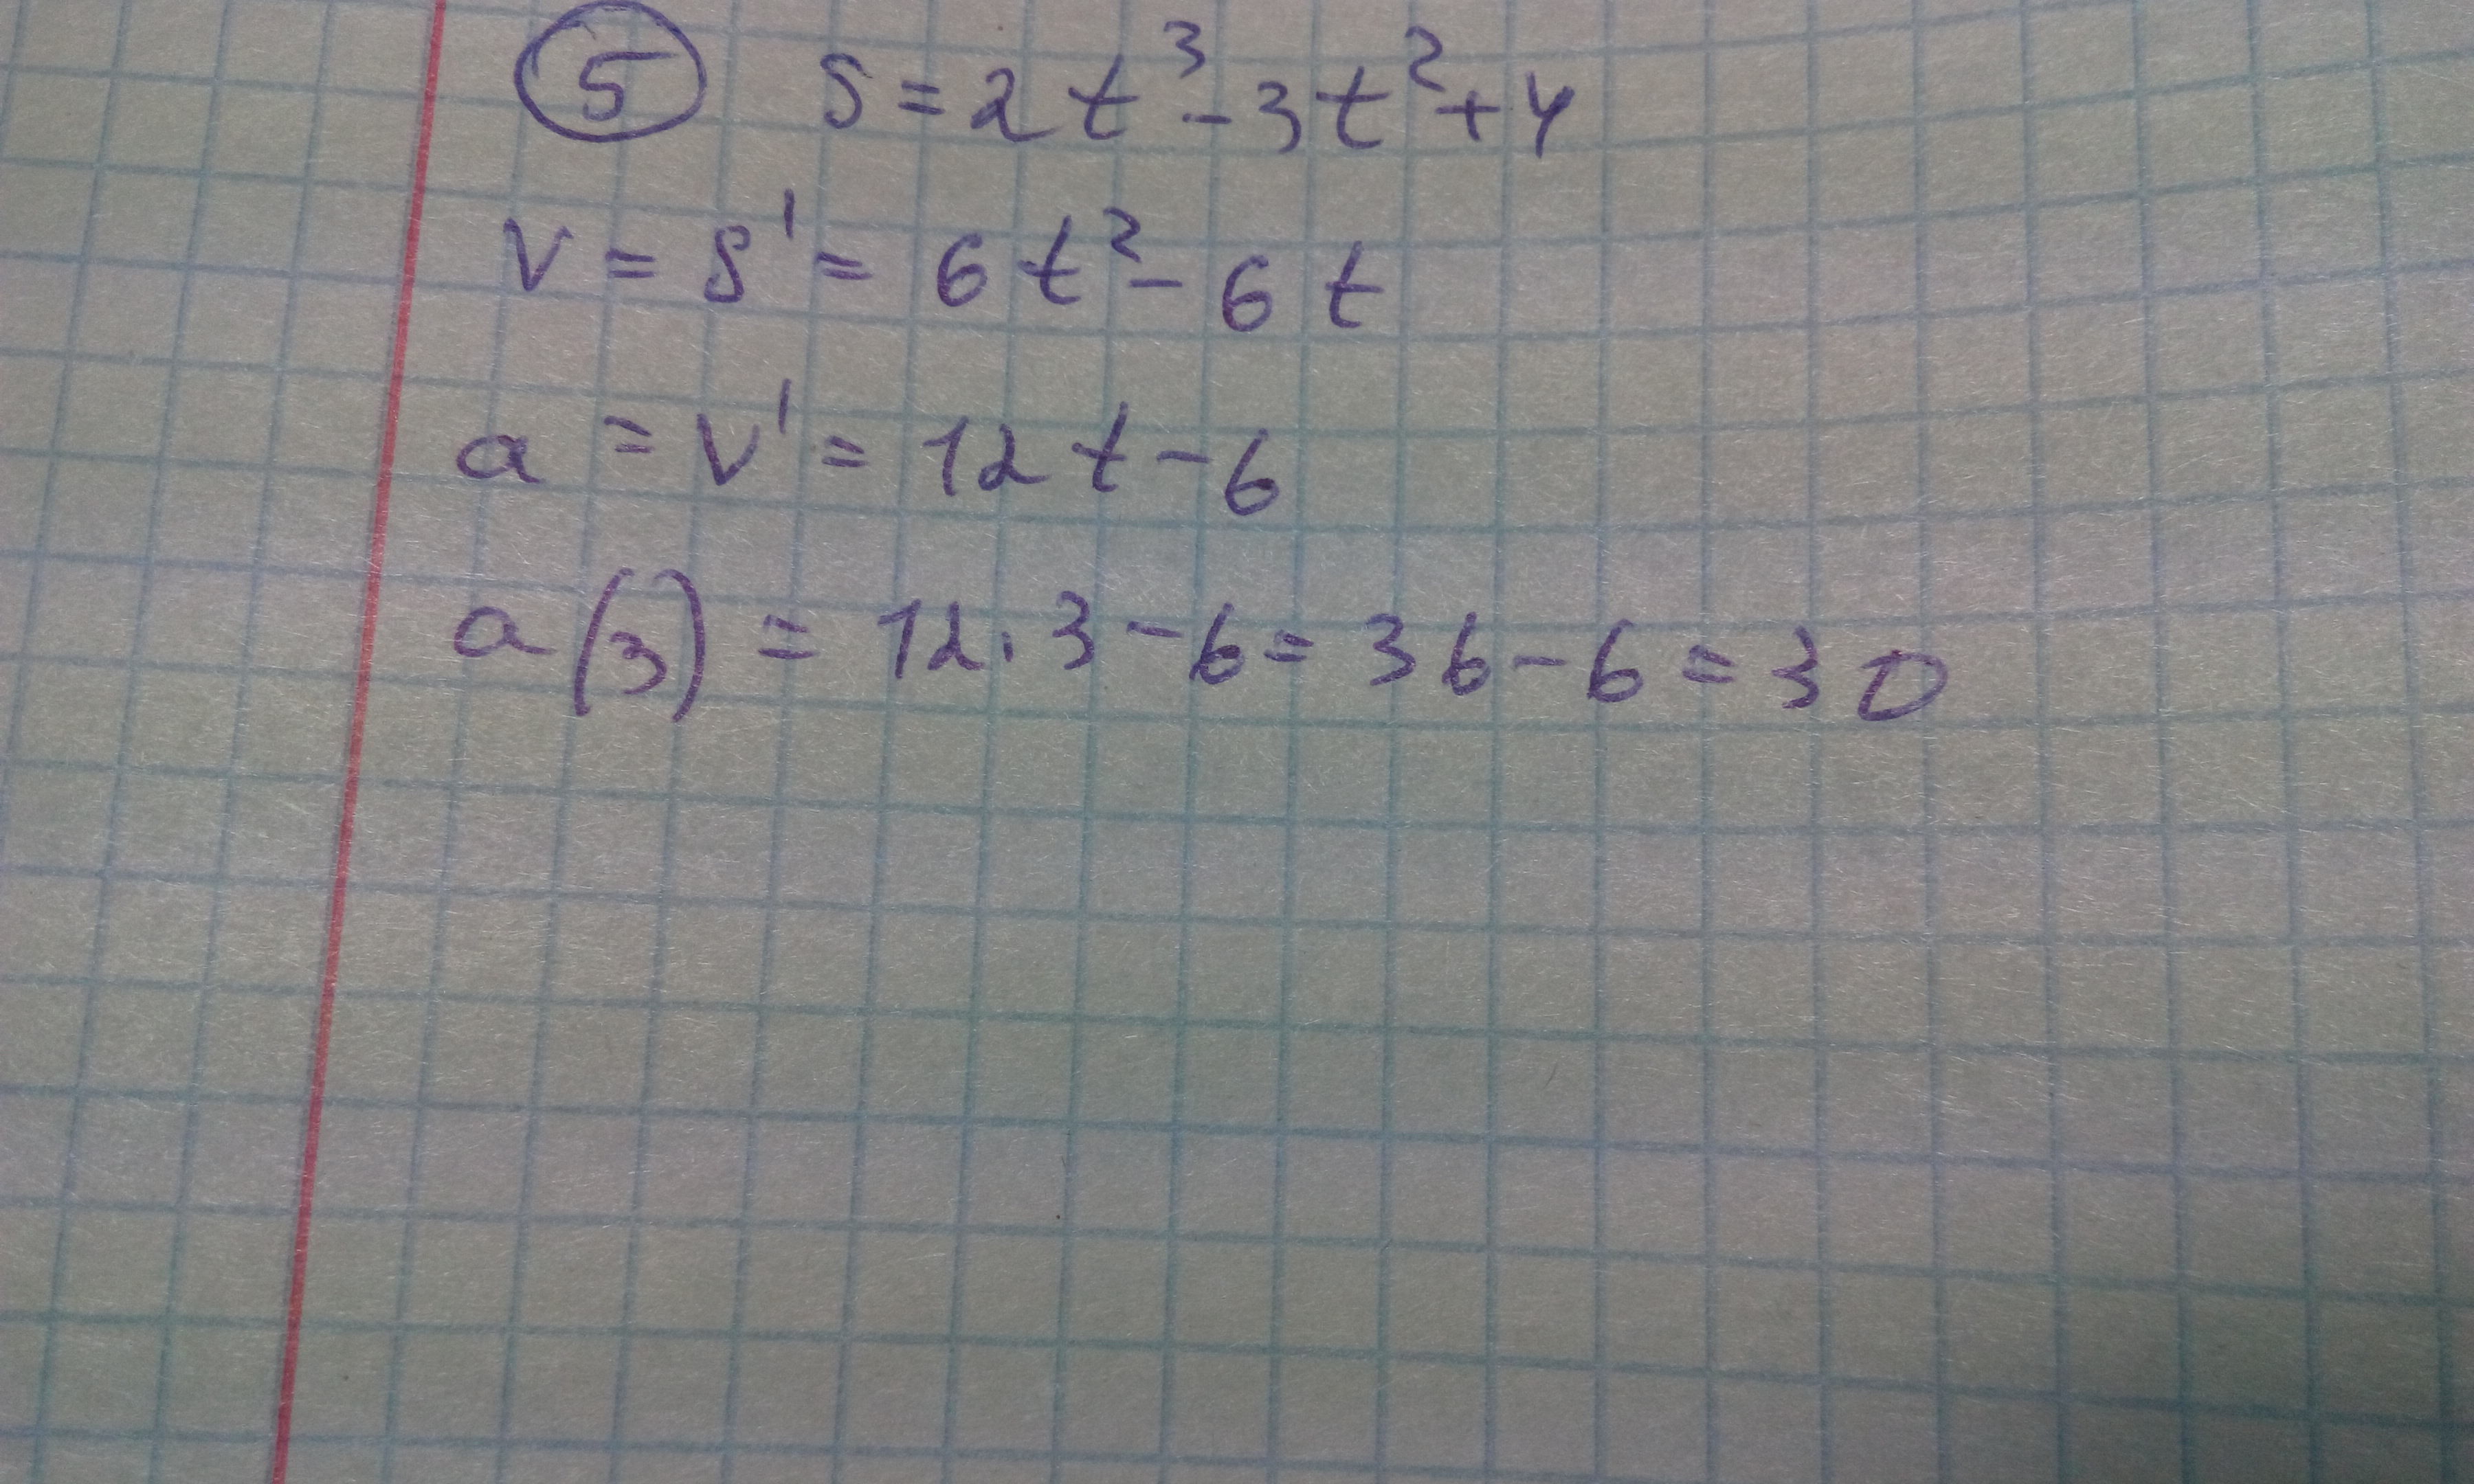 5 S = 2t³ - 3t² + 4
V = S' = 6t² - 6t
a = V' = 12t - 6
a(3) = 12 · 3 - 6 = 36 - 6 = 30